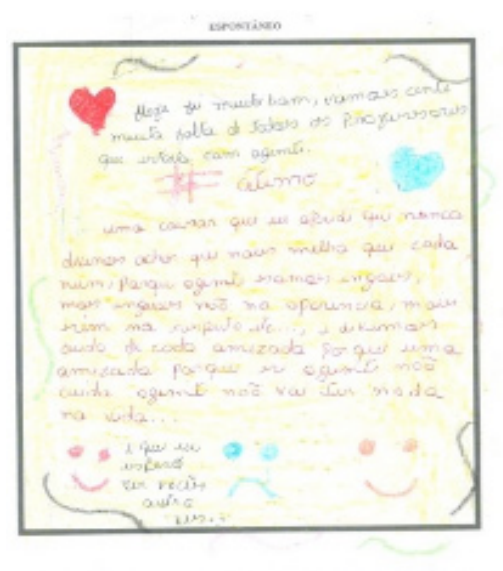 ESPONTÂNEO
Hoje foi muito bom, vamos centi
muita falta di todos os Professores
que estava com agenti.
# Ótimo
uma couza que eu aprendi que nunca
divemos achar que naus melho que cada
num, Porque agenti somos inguais,
mais inguais noõ na aparencia, mais
sim na e divimos
cuida di cada amizada Porque uma
amizada Porque si agenti noõ
cuida agenti noõ vai ter nada
na vida...
i que eu
espero
ver vocês
outra